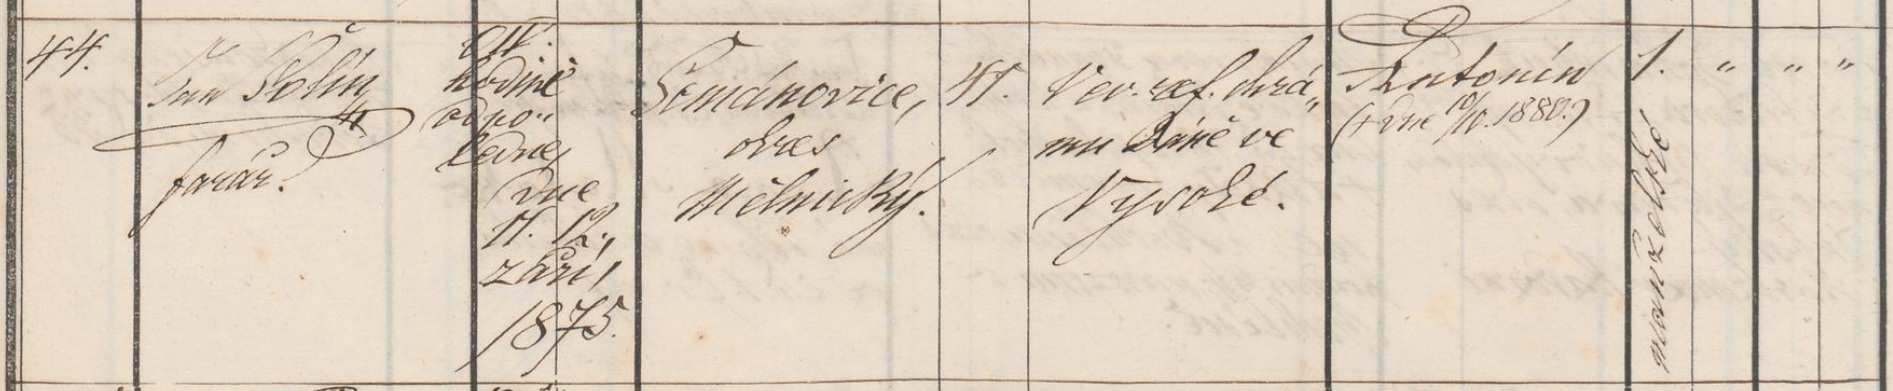 44.
Jan Košín,
farář.
o IV.
hodině
odpo„
ledne,
dne
11. 12.
září,
1875.
Šemánovice,
okres
Mělnický.
41.
V ev. ref. chrá„
mu Páně ve
Vysoké.
Antonín
(+ dne 10/10. 1880.)
1. „ „ „
manželské